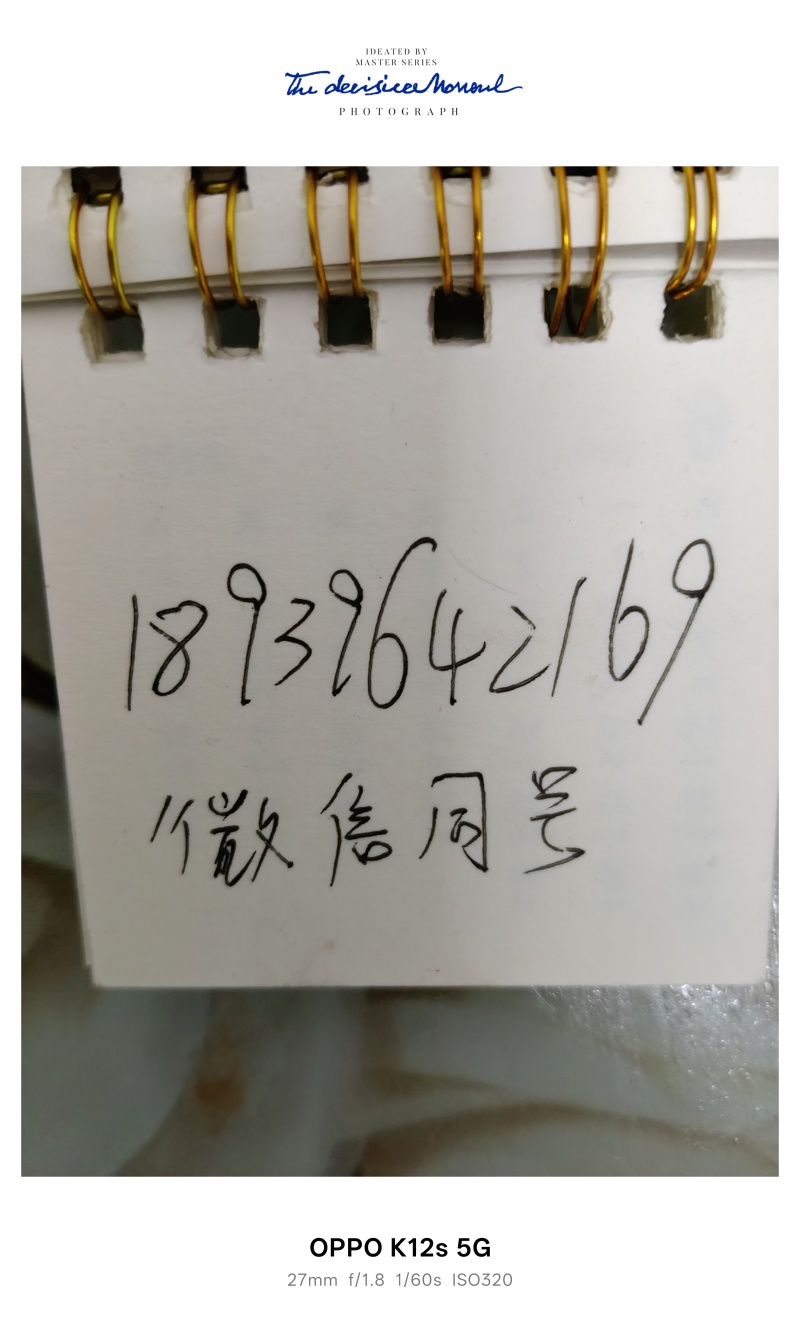 IDEATED BY
MASTER SERIES
The decisive Moment
PHOTOGRAPH
18939642169
微信同号
OPPO K12s 5G
27mm f/1.8 1/60s ISO320